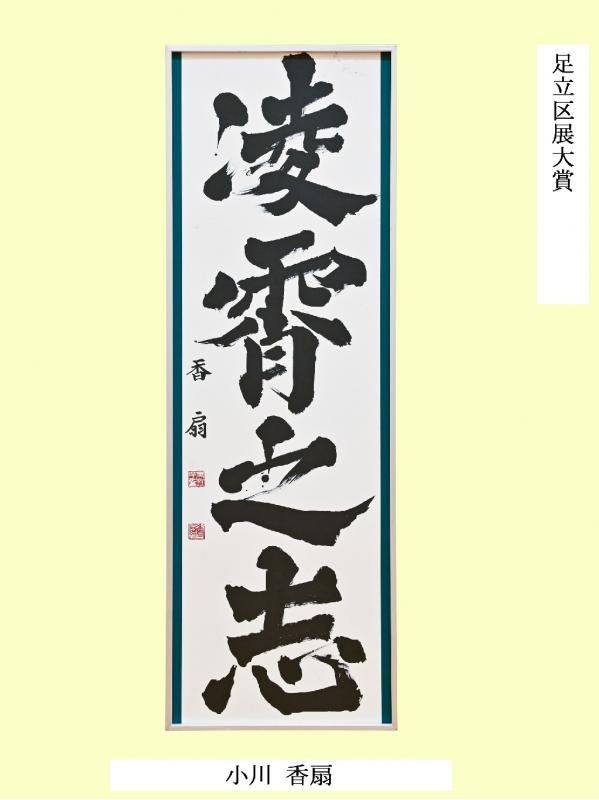 足立区展大賞
凌霄之志
香扇
小川 香扇